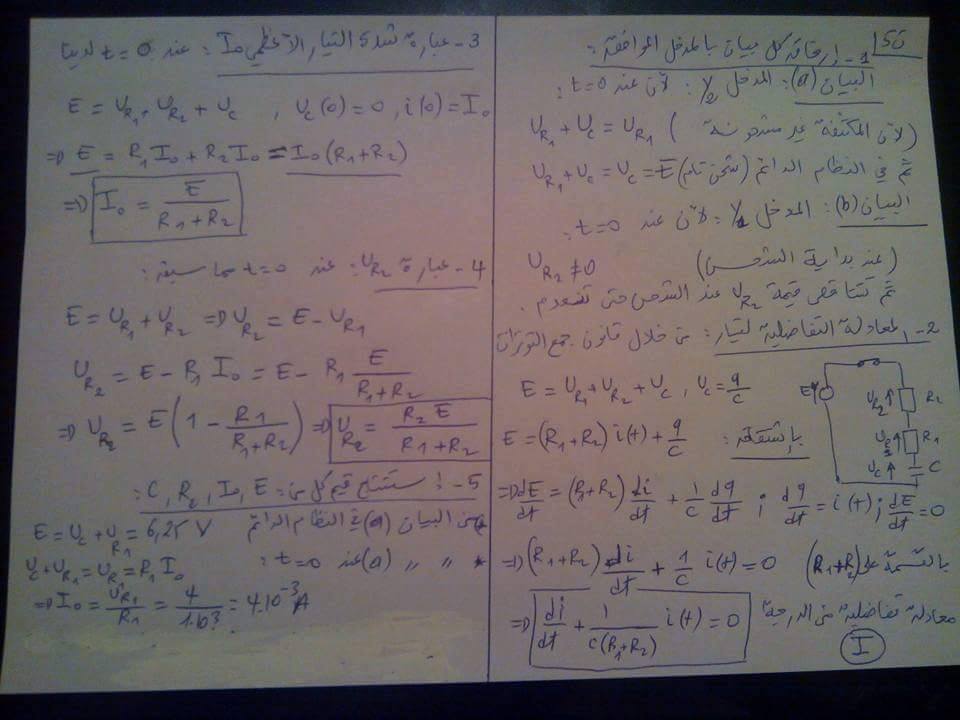 ت5
1- إرفاق كل بيان بالمدخل الموافق:
البيان (a): المدخل Y₂: لأن عند t=0:
U_R₁ + U_C = U_R₁ (لأن المكثفة غير مشحونة)
ثم في النظام الدائم (شحن تام) U_R₁ + U_C = U_C = E
البيان (b): المدخل Y₁: لأن عند t=0:
U_R₂ ≠ 0 (عند بداية الشحن)
ثم تتناقص قيمة U_R₂ عند الشحن حتى تنعدم.
2- المعادلة التفاضلية لتيار: من خلال قانون جمع التوترات
E = U_R₁ + U_R₂ + U_C , U_C = q/C
E = (R₁+R₂) i(t) + q/C بإشتقاق:
⇒ dE/dt = (R₁+R₂) di/dt + 1/C dq/dt ; dq/dt = i(t) ; dE/dt = 0
⇒ (R₁+R₂) di/dt + 1/C i(t) = 0 بالقسمة على (R₁+R₂)
⇒ di/dt + 1/C(R₁+R₂) i(t) = 0 معادلة تفاضلية من الدرجة
I
E
U_R₂ R₂
R₁
U_C C
3- عبارة شدة التيار الأعظمي I₀: عند t=0 لدينا
E = U_R₁ + U_R₂ + U_C , U_C(0) = 0 , i(0) = I₀
⇒ E = R₁I₀ + R₂I₀ = I₀(R₁+R₂)
⇒ I₀ = E/R₁+R₂
4- عبارة U_R₂: عند t=0 مما سبق:
E = U_R₁ + U_R₂ ⇒ U_R₂ = E - U_R₁
U_R₂ = E - R₁ I₀ = E - R₁ E/R₁+R₂
⇒ U_R₂ = E(1 - R₁/R₁+R₂) ⇒ U_R₂ = R₂E/R₁+R₂
5- إستنتاج قيم كل من: C, R₂, I₀, E:
من البيان (a) في النظام الدائم E = U_C + U_R₁ = 6,25 V
* " " (a) عند t=0: U_C + U_R₁ = U_R₁ = R₁I₀
⇒ I₀ = U_R₁/R₁ = 4/1.10³ = 4.10⁻³ A